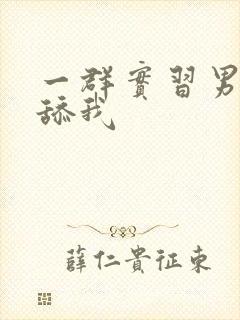 一群實習男
舔我
薛仁貴征東